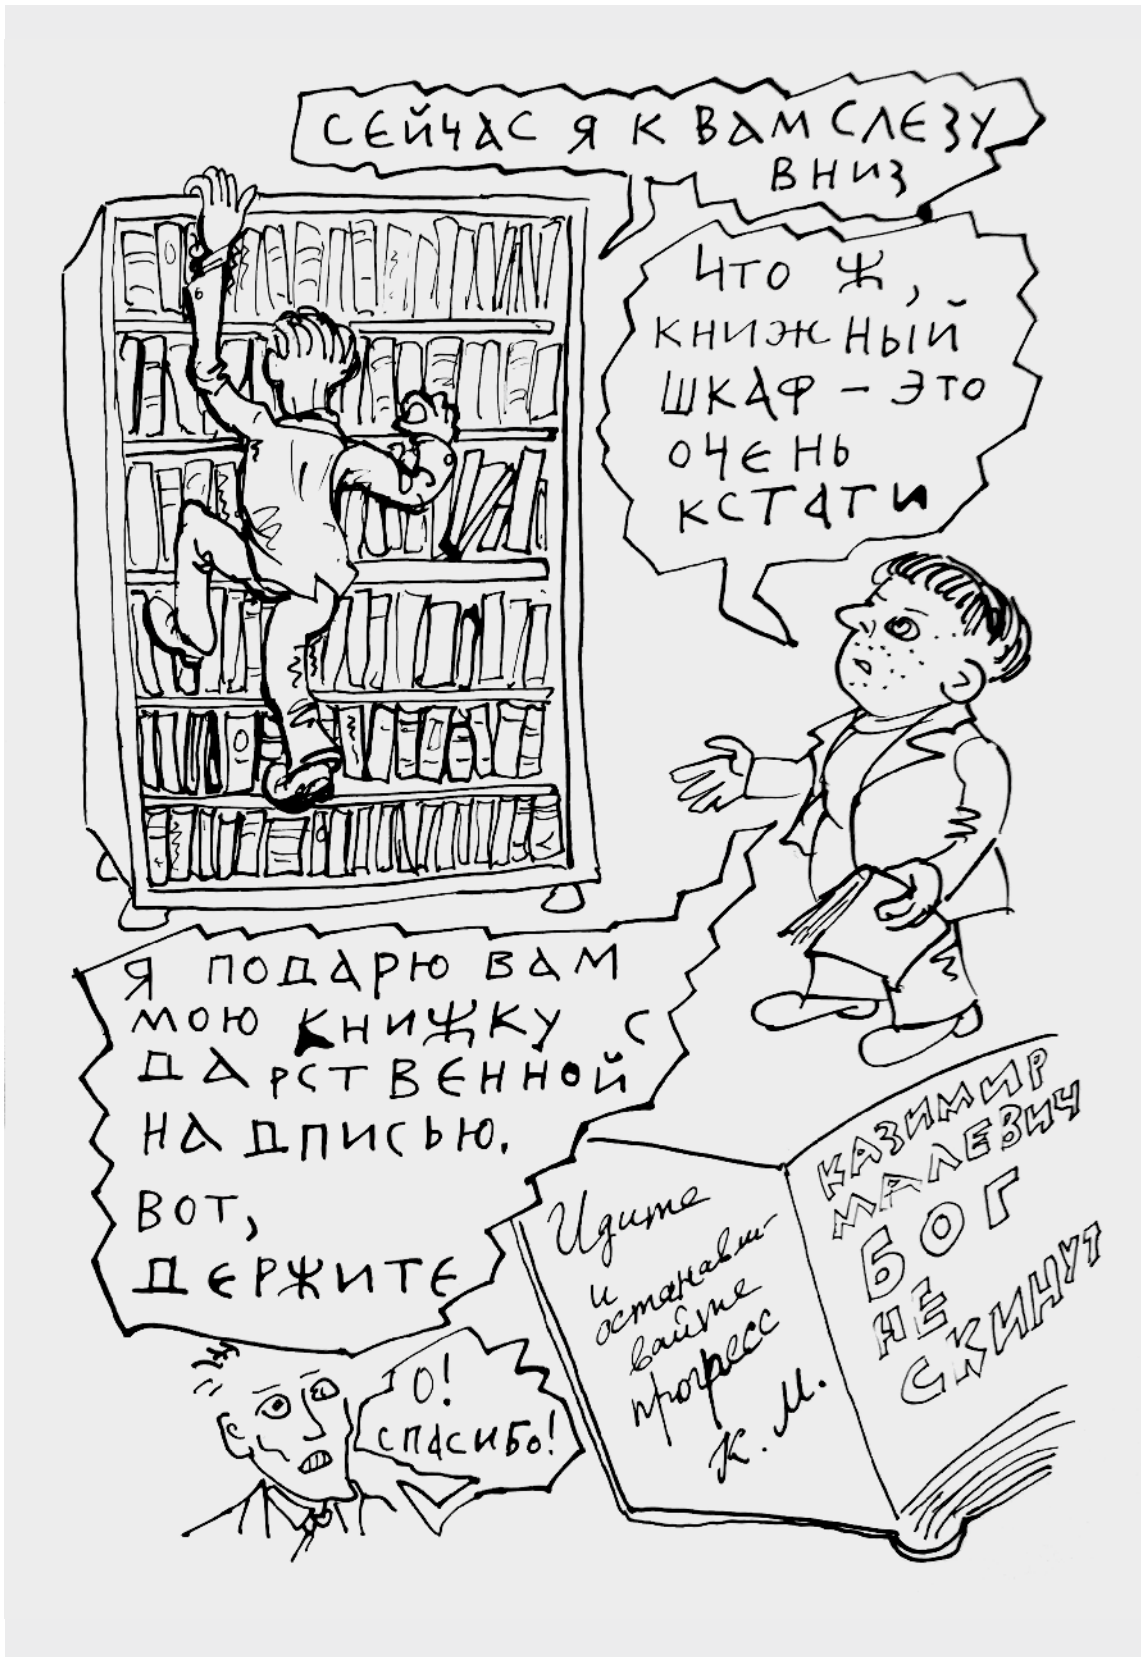 СЕЙЧАС Я К ВАМ СЛЕЗУ
ВНИЗ
ЧТО Ж,
КНИЖНЫЙ
ШКАФ – ЭТО
ОЧЕНЬ
КСТАТИ
Я ПОДАРЮ ВАМ
МОЮ КНИЖКУ С
ДАРСТВЕННОЙ
НАДПИСЬЮ.
ВОТ,
ДЕРЖИТЕ
Идите
и
останавли-
вайте
прогресс
К. М.
КАЗИМИР
МАЛЕВИЧ
БОГ
НЕ
СКИНУТ
О!
СПАСИБО!